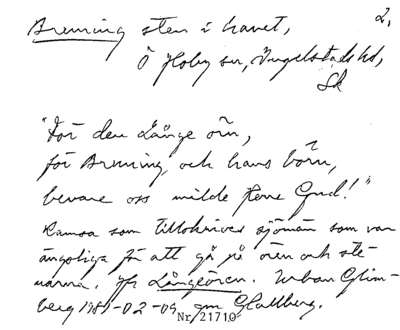 2.
Bruning sten i havet,
Ö Hoby sn, Ingelstads hd,
Sk
"För den Långe örn,
för Bruning, och hans börn,
bevare oss milde Herre Gud!"
Ramsa som tillskrives sjömän som var
ängsliga för att gå på ören och ste-
narna. Jfr Långören. Urban Glim-
berg 1981-02-09 gm Glallberg.
Nr 21710